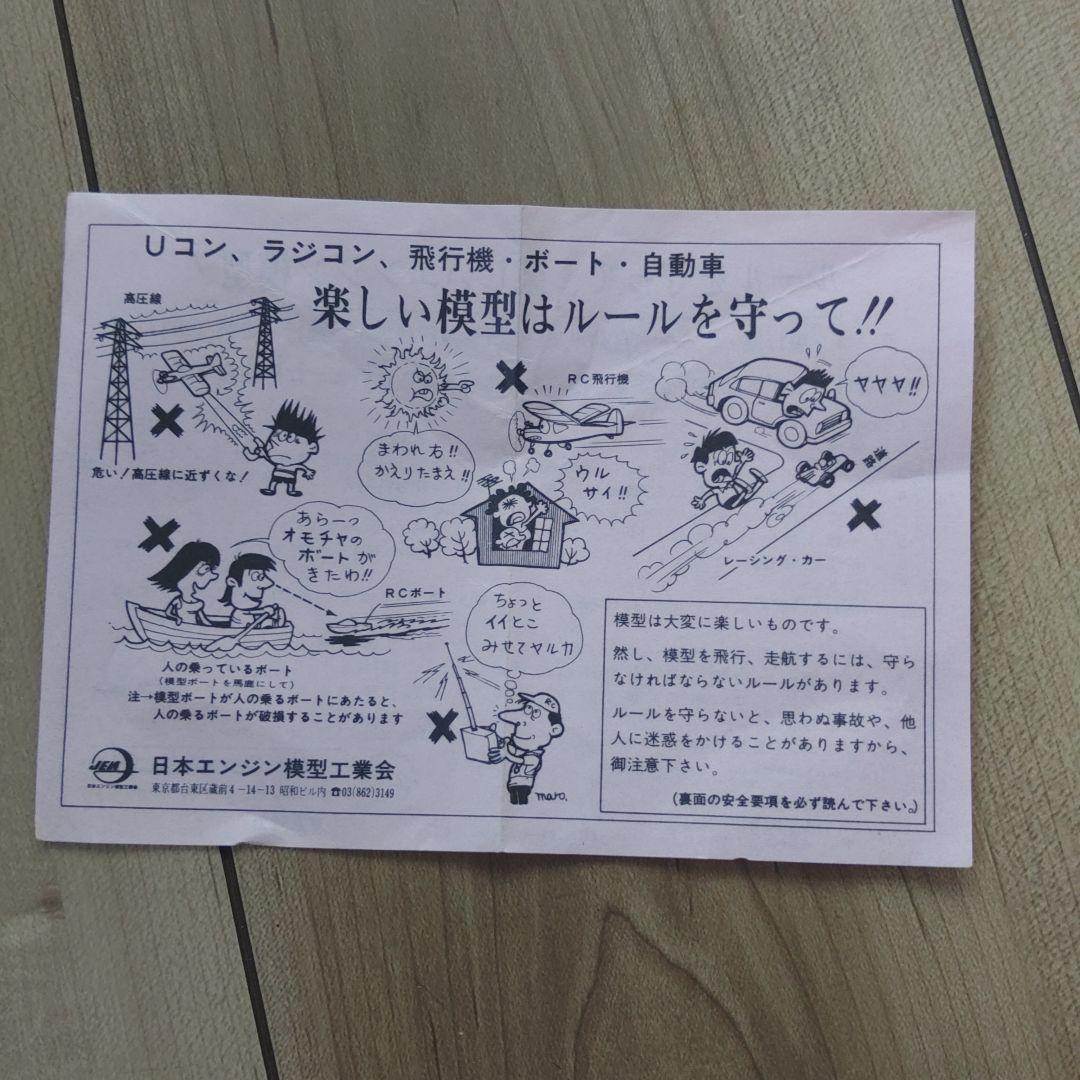 Uコン、ラジコン、飛行機・ボート・自動車
楽しい模型はルールを守って!!
高圧線
危い!高圧線に近ずくな!
まわれ右!!
かえりたまえ!!
RC飛行機
ウル
サイ!!
ヤヤヤ!!
道路
レーシング・カー
あらーっ
オモチャの
ボートが
きたわ!!
RCボート
人の乗っているボート
(模型ボートを馬鹿にして)
注→模型ボートが人の乗るボートにあたると、
人の乗るボートが破損することがあります
ちょっと
イイとこ
みせてヤルカ
RC
maro.
模型は大変に楽しいものです。
然し、模型を飛行、走航するには、守ら
なければならないルールがあります。
ルールを守らないと、思わぬ事故や、他
人に迷惑をかけることがありますから、
御注意下さい。
(裏面の安全要項を必ず読んで下さい。)
JEM
日本エンジン模型工業会
日本エンジン模型工業会
東京都台東区蔵前4-14-13 昭和ビル内 ☎03(862)3149